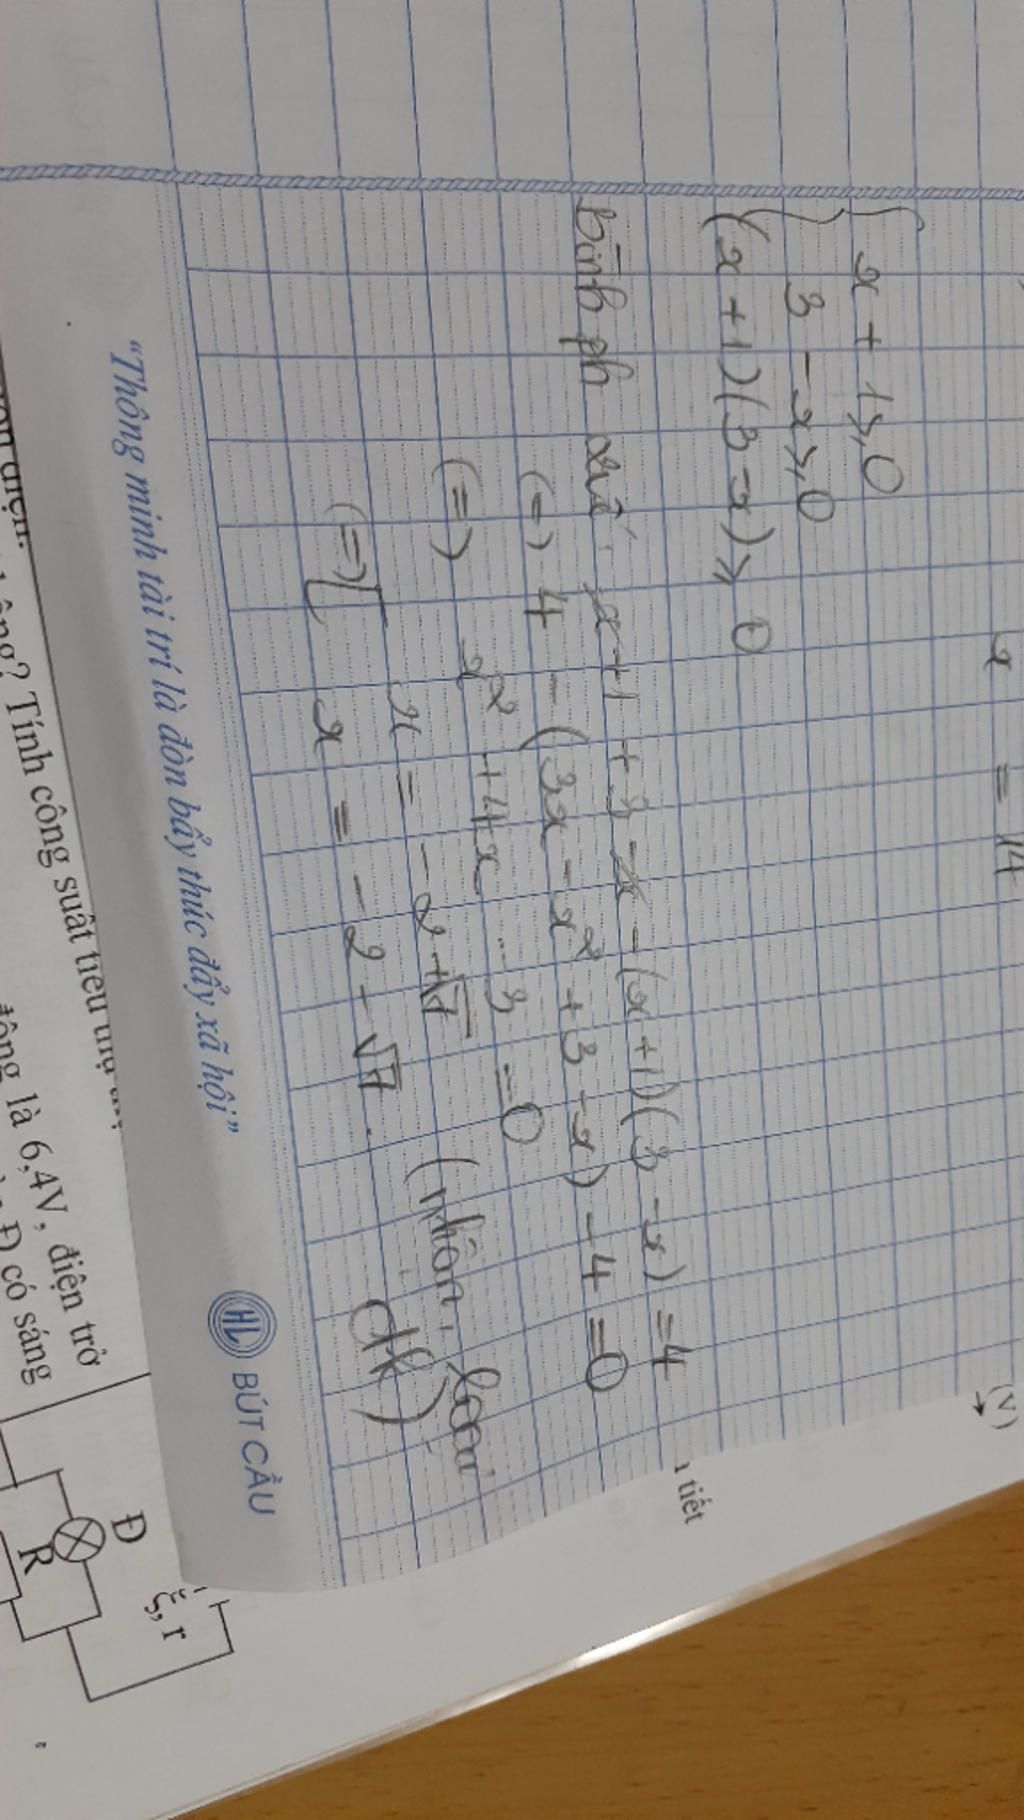 x = 14
x + 1 ⩾ 0
3 - x ⩾ 0
(x + 1)(3 - x) ⩾ 0
bình ph x+1 + 3 - x - (x+1)(3 - x) = 4
(=) 4 - (3x - x² + 3 - x) - 4 = 0
(=) x² + 4x ... 3 = 0
(=) [ x = -2+√7 (nhận, loại
x = -2 - √7. đk)
"Thông minh tài trí là đòn bẩy thúc đẩy xã hội"
HL BÚT CẦU
(V)
tiết
Tính công suất tiêu thụ
động là 6,4V, điện trở
Đ có sáng
Đ
R
ξ, r